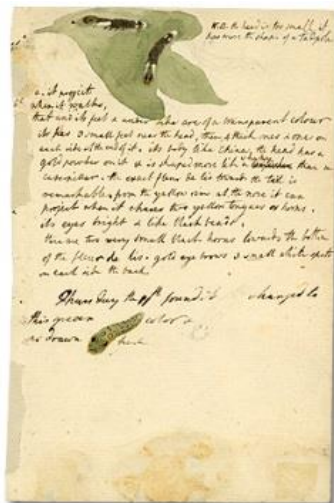 N.B. the head is too small, it
has more the shape of a tadpole
a. it projects
when it walks,
that and its feet & under side are of a transparent colour
its has 3 small feet near the head, then 4 thick ones & one on
each side of the end of it, its body like China, the head has a
gold powder on it & is shaped more like a than a
caterpillar. the exact fleur de lis towards the tail is
remarkable, from the yellow rim at the nose it can
project when it chuses two yellow tongues or horns.
its eyes bright & like black beads.
there are two very small black horns towards the bottom
of the fleur de lis. gold eye brows 3 small white spots
on each side the back
Thursday the found it changed to
this green color &
no drawn